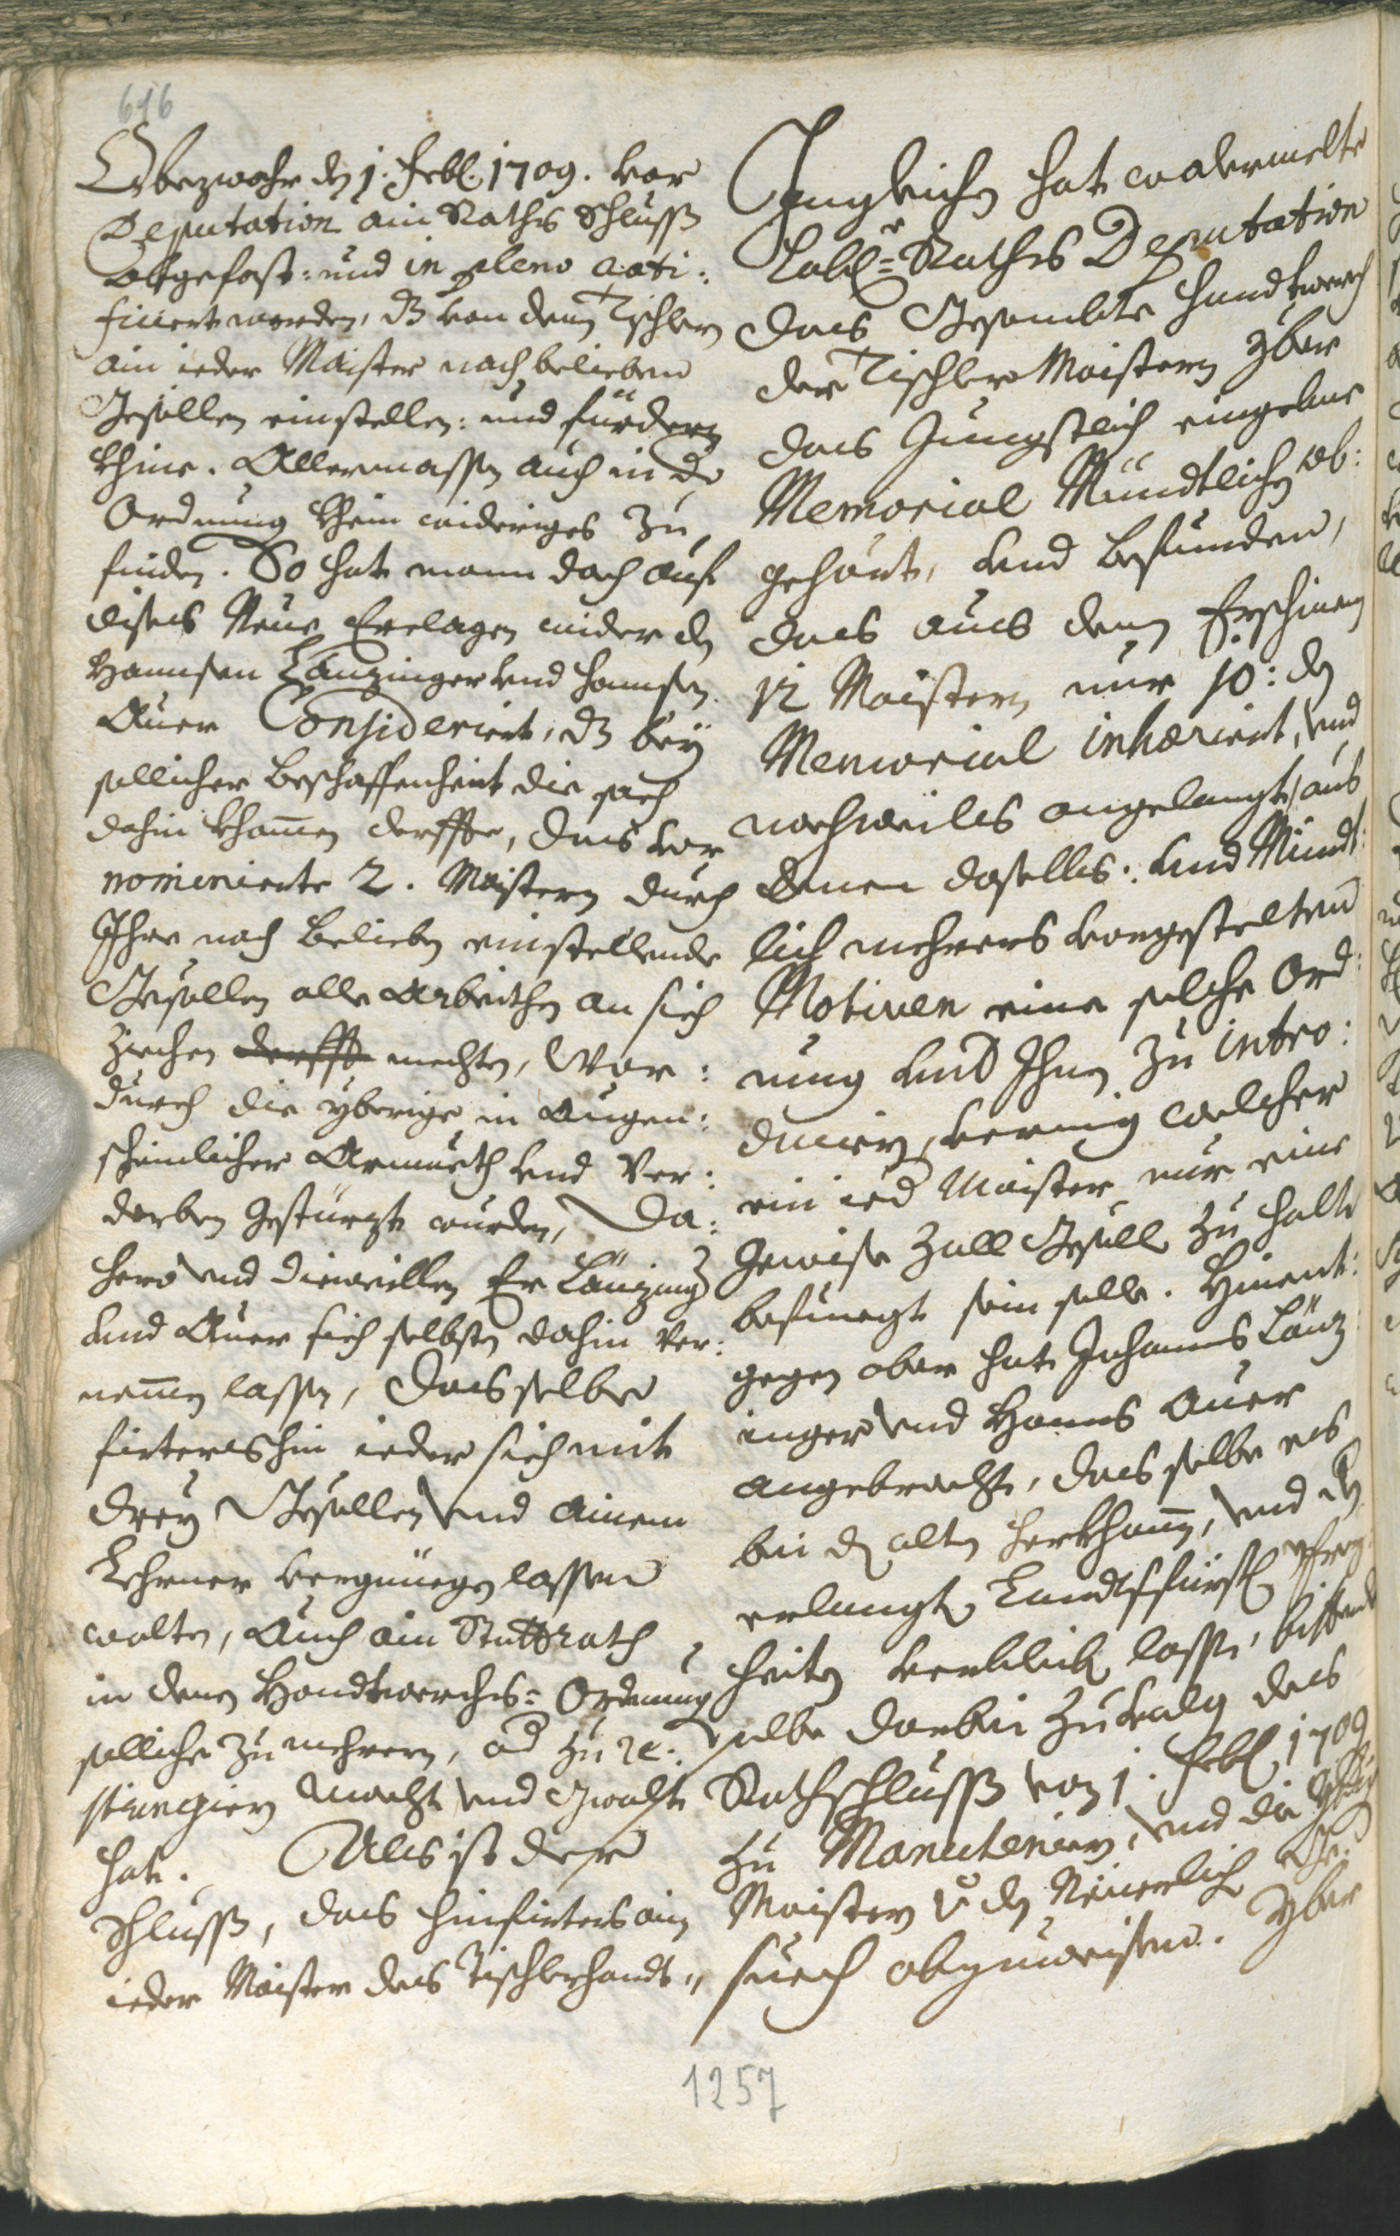 616
Obezwohr den 1. Febl. 1709. vor
Deputation ain Raths Schluss
abgefast: und in pleno rati:
ficiert worden, dz von denen Tischlern
ain ieder Maister nach belieben
Gesöllen einstellen: und fürdern
khine. Allermassen auch in der
Ordnung khein widriges zu
finden. So hat mann doch auf
dises Neue Erclagen wider den
Hannsen Länzinger und Hannsen
Auer Consideriert, dz bey
sollicher beschaffenheit die sach
dahin khomen derffte, das vor
nominierte 2. Maistern durch
Ihre nach belieben einstellende
Gesöllen alle Arbeithen an sich
ziechen derffte mechten, wor:
durch die yberige in Augen:
scheinlicher Armueth und Ver:
derben gestürzt wurden, Da:
hero und dieweillen Er Länzing
und Auer sich selbsten dahin ver:
nemen lassen, das selbe
firterhin ieder sich mit
drey Gesöllen und ainem
Lehrner vergnüegen lassen
wolten, Auch ain Stattrath
in denen Handtwerchs=Ordnung
solliche zu mehrern, od zu re:
stringiern macht und gwalt
hat. Als ist der
schluss, das hinfirters ain
ieder Maister des Tischlerhandt:
Ingleichen hat wolermelte
Löbl: Raths Deputation
das Gesambte Handtwerch
der Tischler Maistern yber
das Jungstlich eingebne
Memorial Mündtlichen ab:
gehört, und befunden,
das aus denen Erschinen
12 Maistern nur 10: den
Memorial inhæriert, und
nochweils angelangt, aus
denen daselbs: und Mündt:
lich mehrers vorgestelten
Motiven eine solche Ord:
nung und Ihnen zu intro:
duciern, vermig welcher
ein ied Maister nur eine
Gewise Zall Gesöll zu halten
befuegt sein solle. Hinent:
gegen aber hat Johannes Länz:
inger und Hanns Auer
angebracht, das selbe es
bei den alten Herkhomen, und den
erlangten Landtsfürstl: 
heiten verbleiben lassen, bittendt
selbe darbei zufolg des
Rathschluss von 1. Febl. 1709
zu Manuteniern, und die Ybrig
Maistern den Neuerlich
suech abzuweisen. Yber
1257